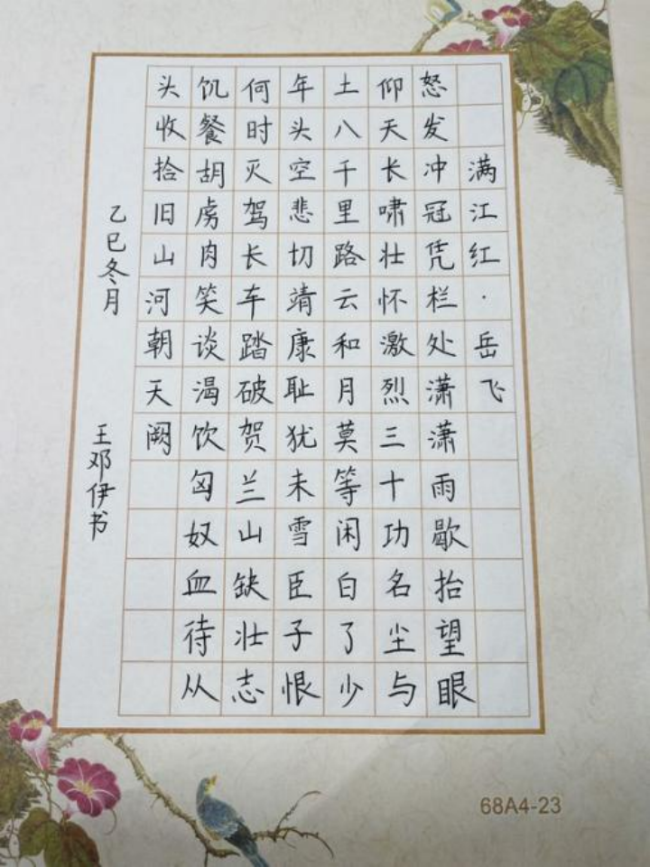 满江红·岳飞
怒发冲冠凭栏处潇潇雨歇抬望眼
仰天长啸壮怀激烈三十功名尘与
土八千里路云和月莫等闲白了少
年头空悲切靖康耻犹未雪臣子恨
何时灭驾长车踏破贺兰山缺壮志
饥餐胡虏肉笑谈渴饮匈奴血待从
头收拾旧山河朝天阙
乙巳冬月
王邓伊书
68A4-23